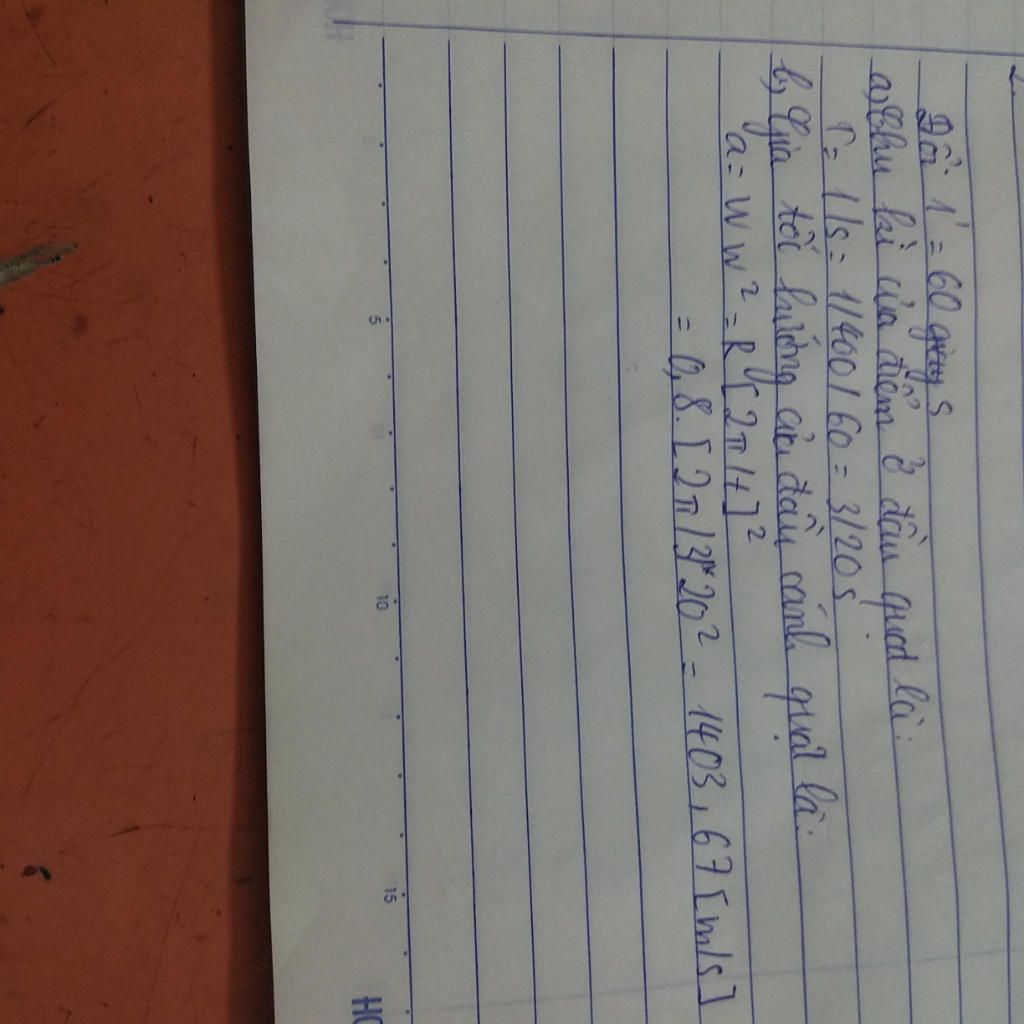 2.
Đổi 1' = 60 giây s
a, Chu kì của điểm ở đầu quạt là:
T = 1/s = 1/400/60 = 3/20 s
b, Gia tốc hướng của đầu cánh quạt là:
a = W w² = R [2π/t]²
= 0,8. [2π/3*20² = 1403,67 [m/s]
5
10
15
HO